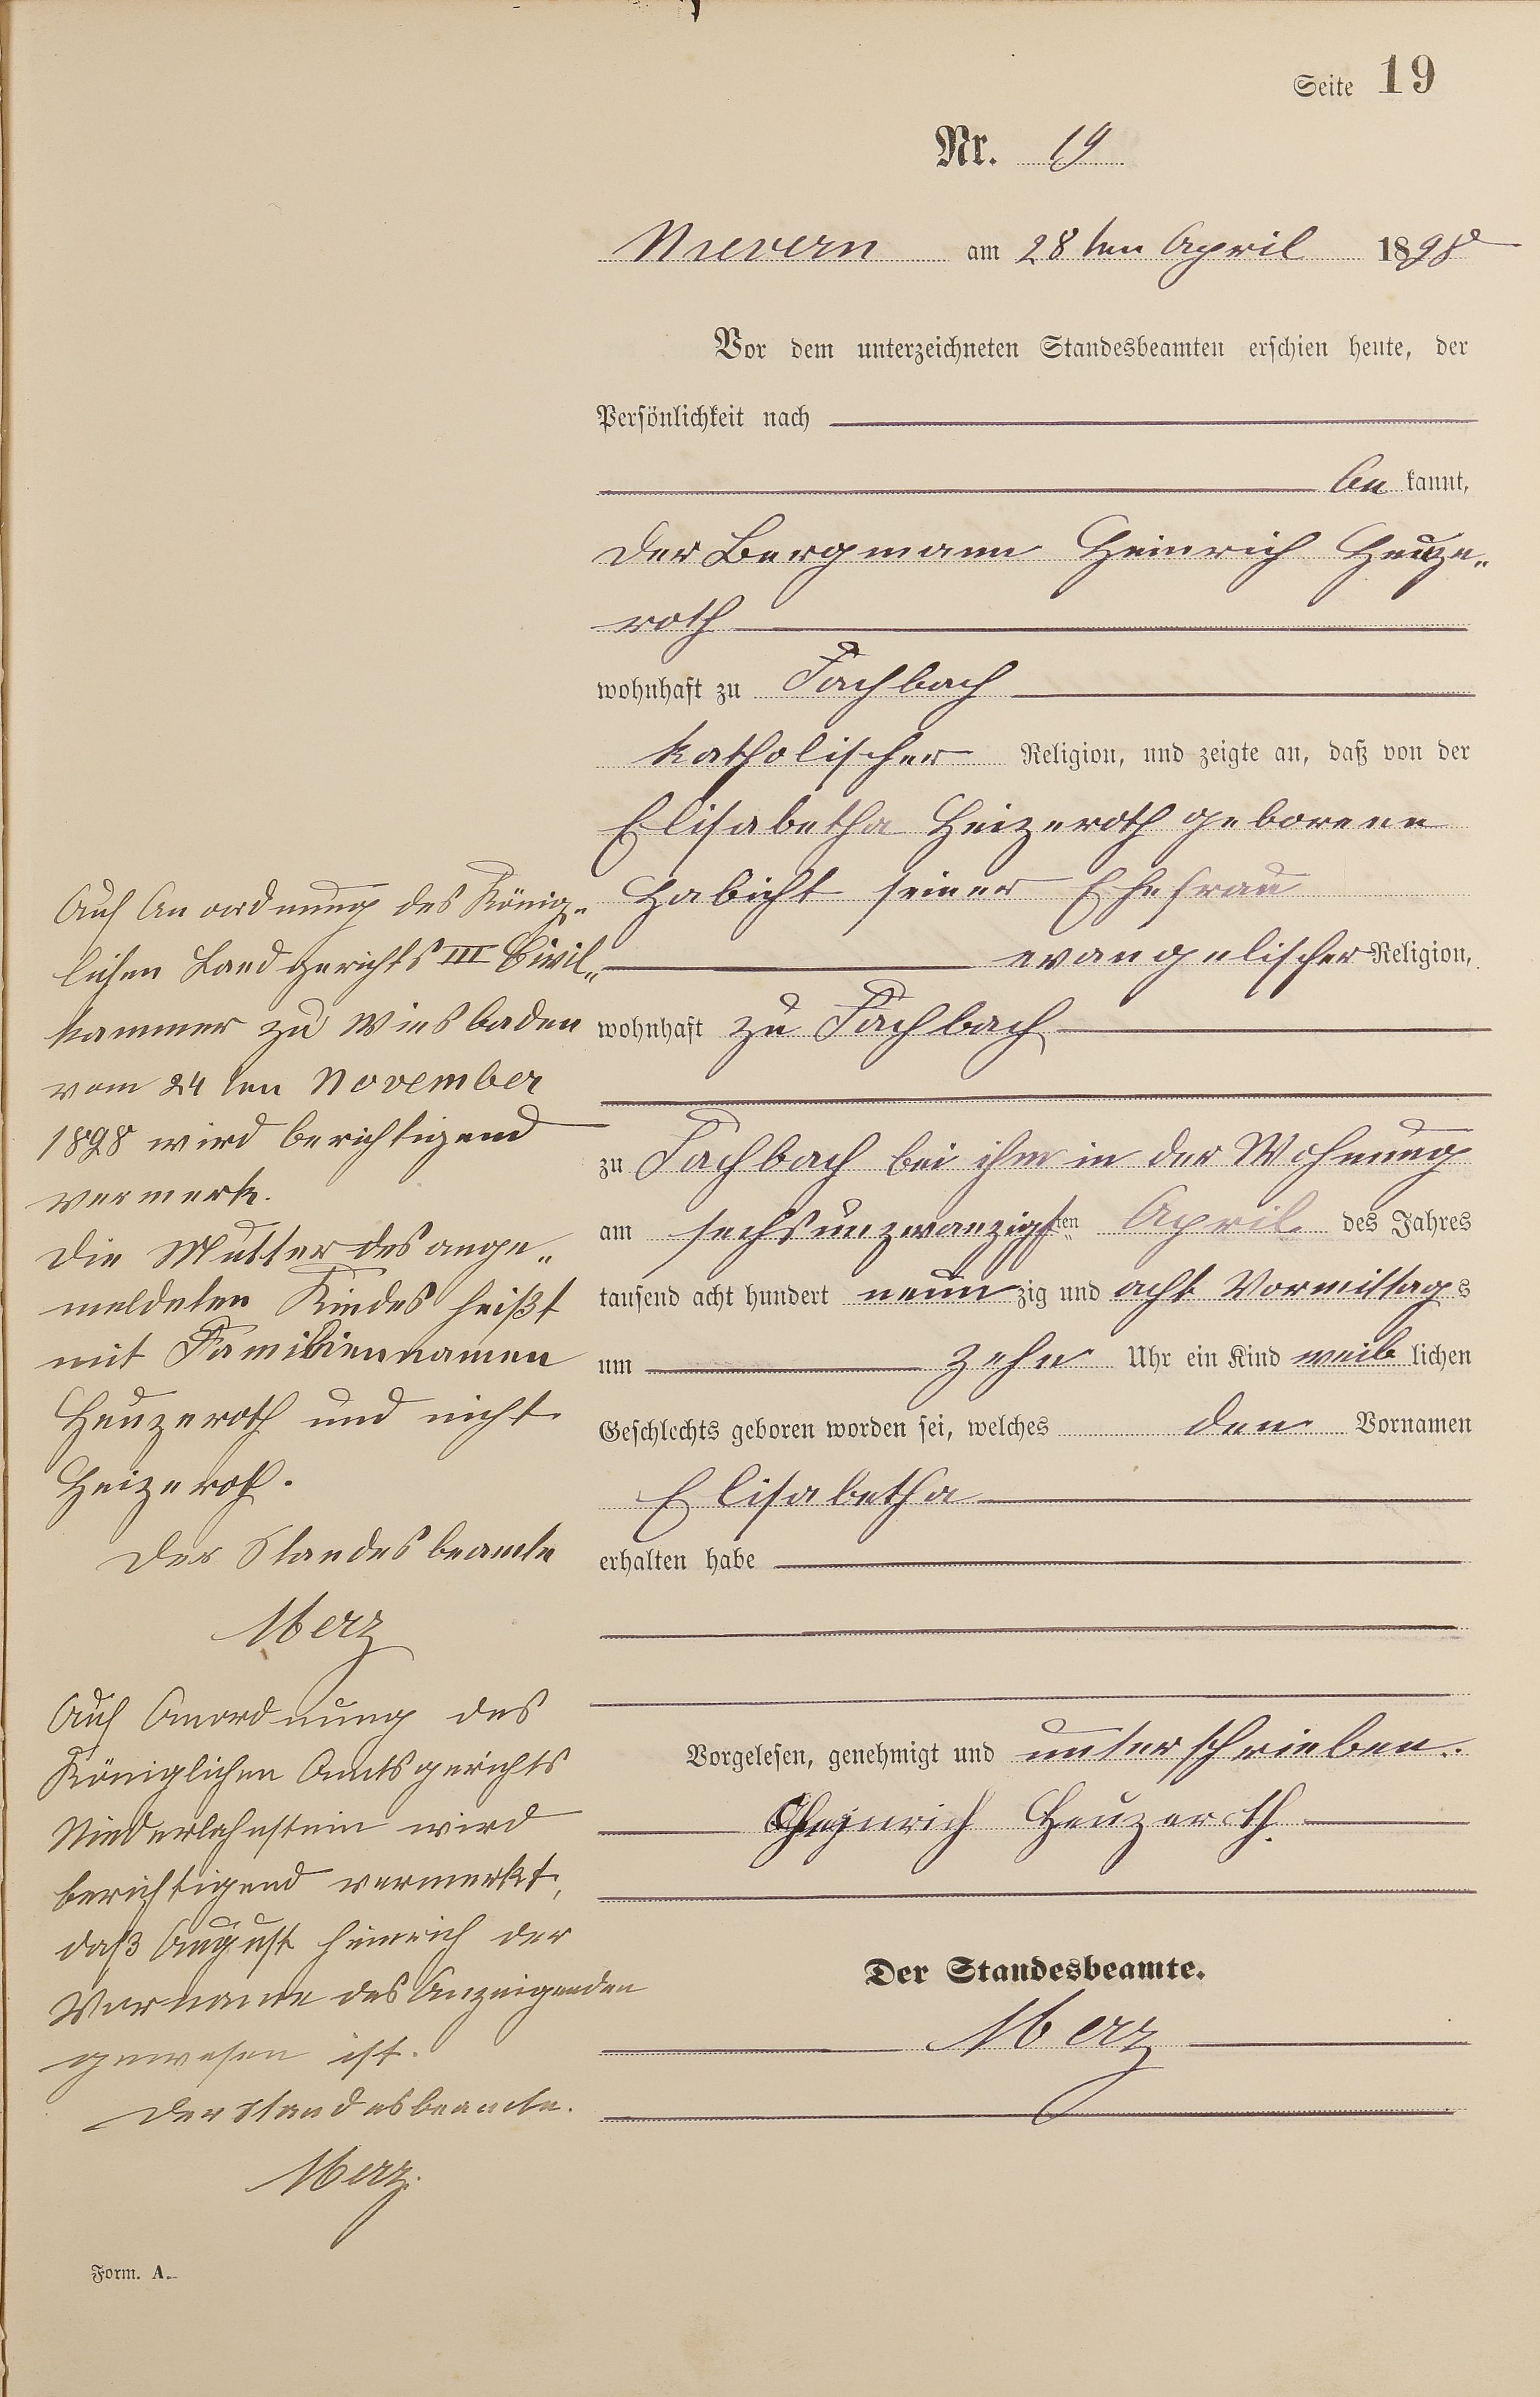 Seite 19
Nr. 19
Nievern am 28ten April 1898
Vor dem unterzeichneten Standesbeamten erschien heute, der
Persönlichkeit nach
be kannt,
der Bergmann Heinrich Heuze„
roth
wohnhaft zu Fachbach
katholischer Religion, und zeigte an, daß von der
Elisabetha Heizeroth geborene
Habicht seiner Ehefrau
evangelischer Religion,
wohnhaft zu Fachbach
zu Fachbach bei ihm in der Wohnung
am sechsunzwanzigsten April des Jahres
tausend acht hundert neun zig und acht Vormittags
um zehn Uhr ein Kind weib lichen
Geschlechts geboren worden sei, welches den Vornamen
Elisabetha
erhalten habe
Vorgelesen, genehmigt und unterschrieben.
Heinrich Heuzeroth.
Der Standesbeamte.
Merz
Auf Anordnung des König„
lichen Landgerichts III Civil„
kammer zu Wiesbaden
vom 24ten November
1898 wird berichtigend
vermerk.
Die Mutter des ange„
meldeten Kindes heißt
mit Familiennamen
Heuzeroth und nicht
Heizeroth.
Der Standesbeamte
Merz
Auf Anordnung des
Königlichen Amtsgerichts
Niederlahnstein wird
berichtigend vermerkt,
daß August Heinrich der
Vorname des Anzeigenden
gewesen ist.
Der Standesbeamte.
Merz.
Form. A.